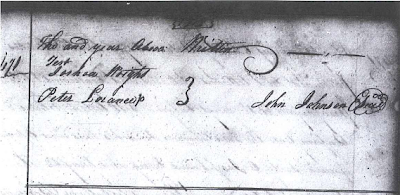 The and year above Written
Test
Joshua Wright
Peter Lorance
John Johnson